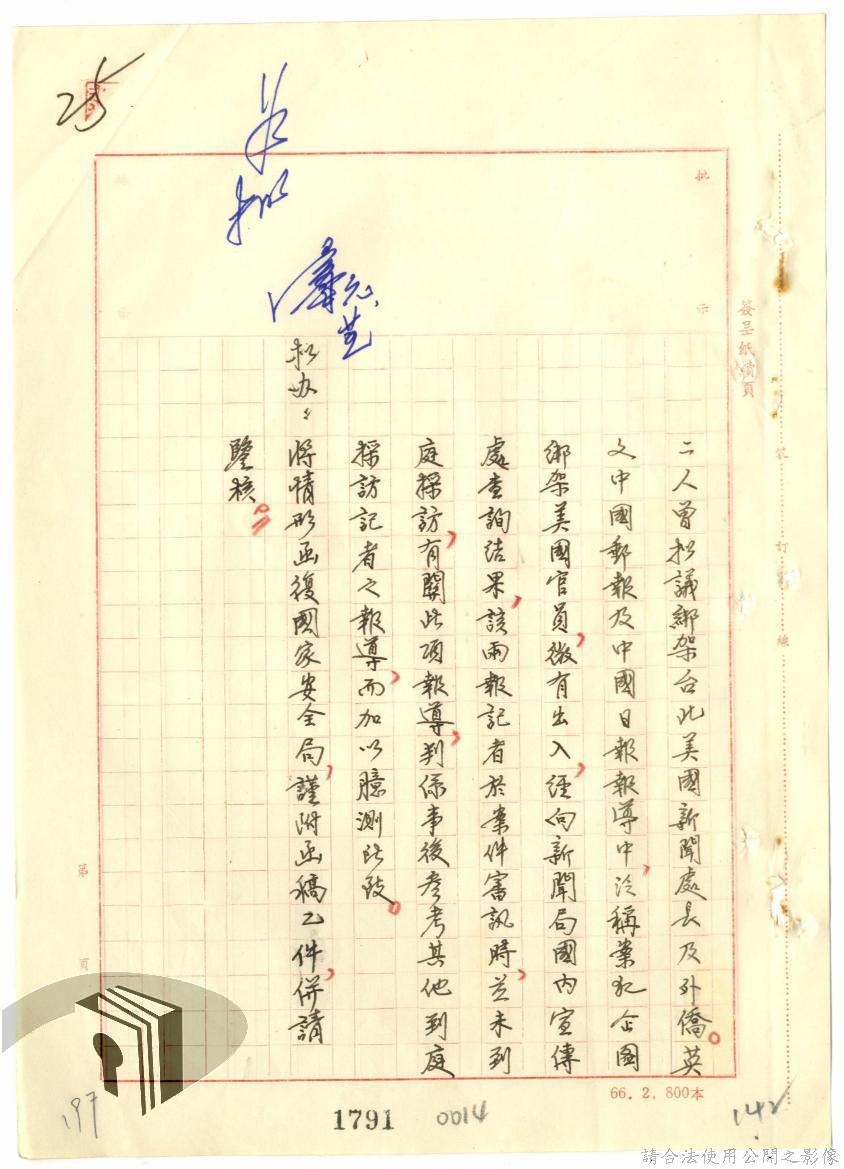 25
批
示
簽呈紙續頁
裝
訂
線
二人曾拟議綁架台北美國新聞處長及外僑。英
文中國郵報及中國日報報導中，泛稱案犯企圖
綁架美國官員，微有出入，經向新聞局國內宣傳
處查詢結果，該兩報記者於案件審訊時，並未到
庭採訪，有關此項報導，判係事後參考其他到庭
採訪記者之報導，而加以臆測所致。
拟办：將情形函復國家安全局，謹附函稿乙件，併請
鑒核。
第
頁
66.2.800本
197
1791
0014
142
請合法使用公開之影像